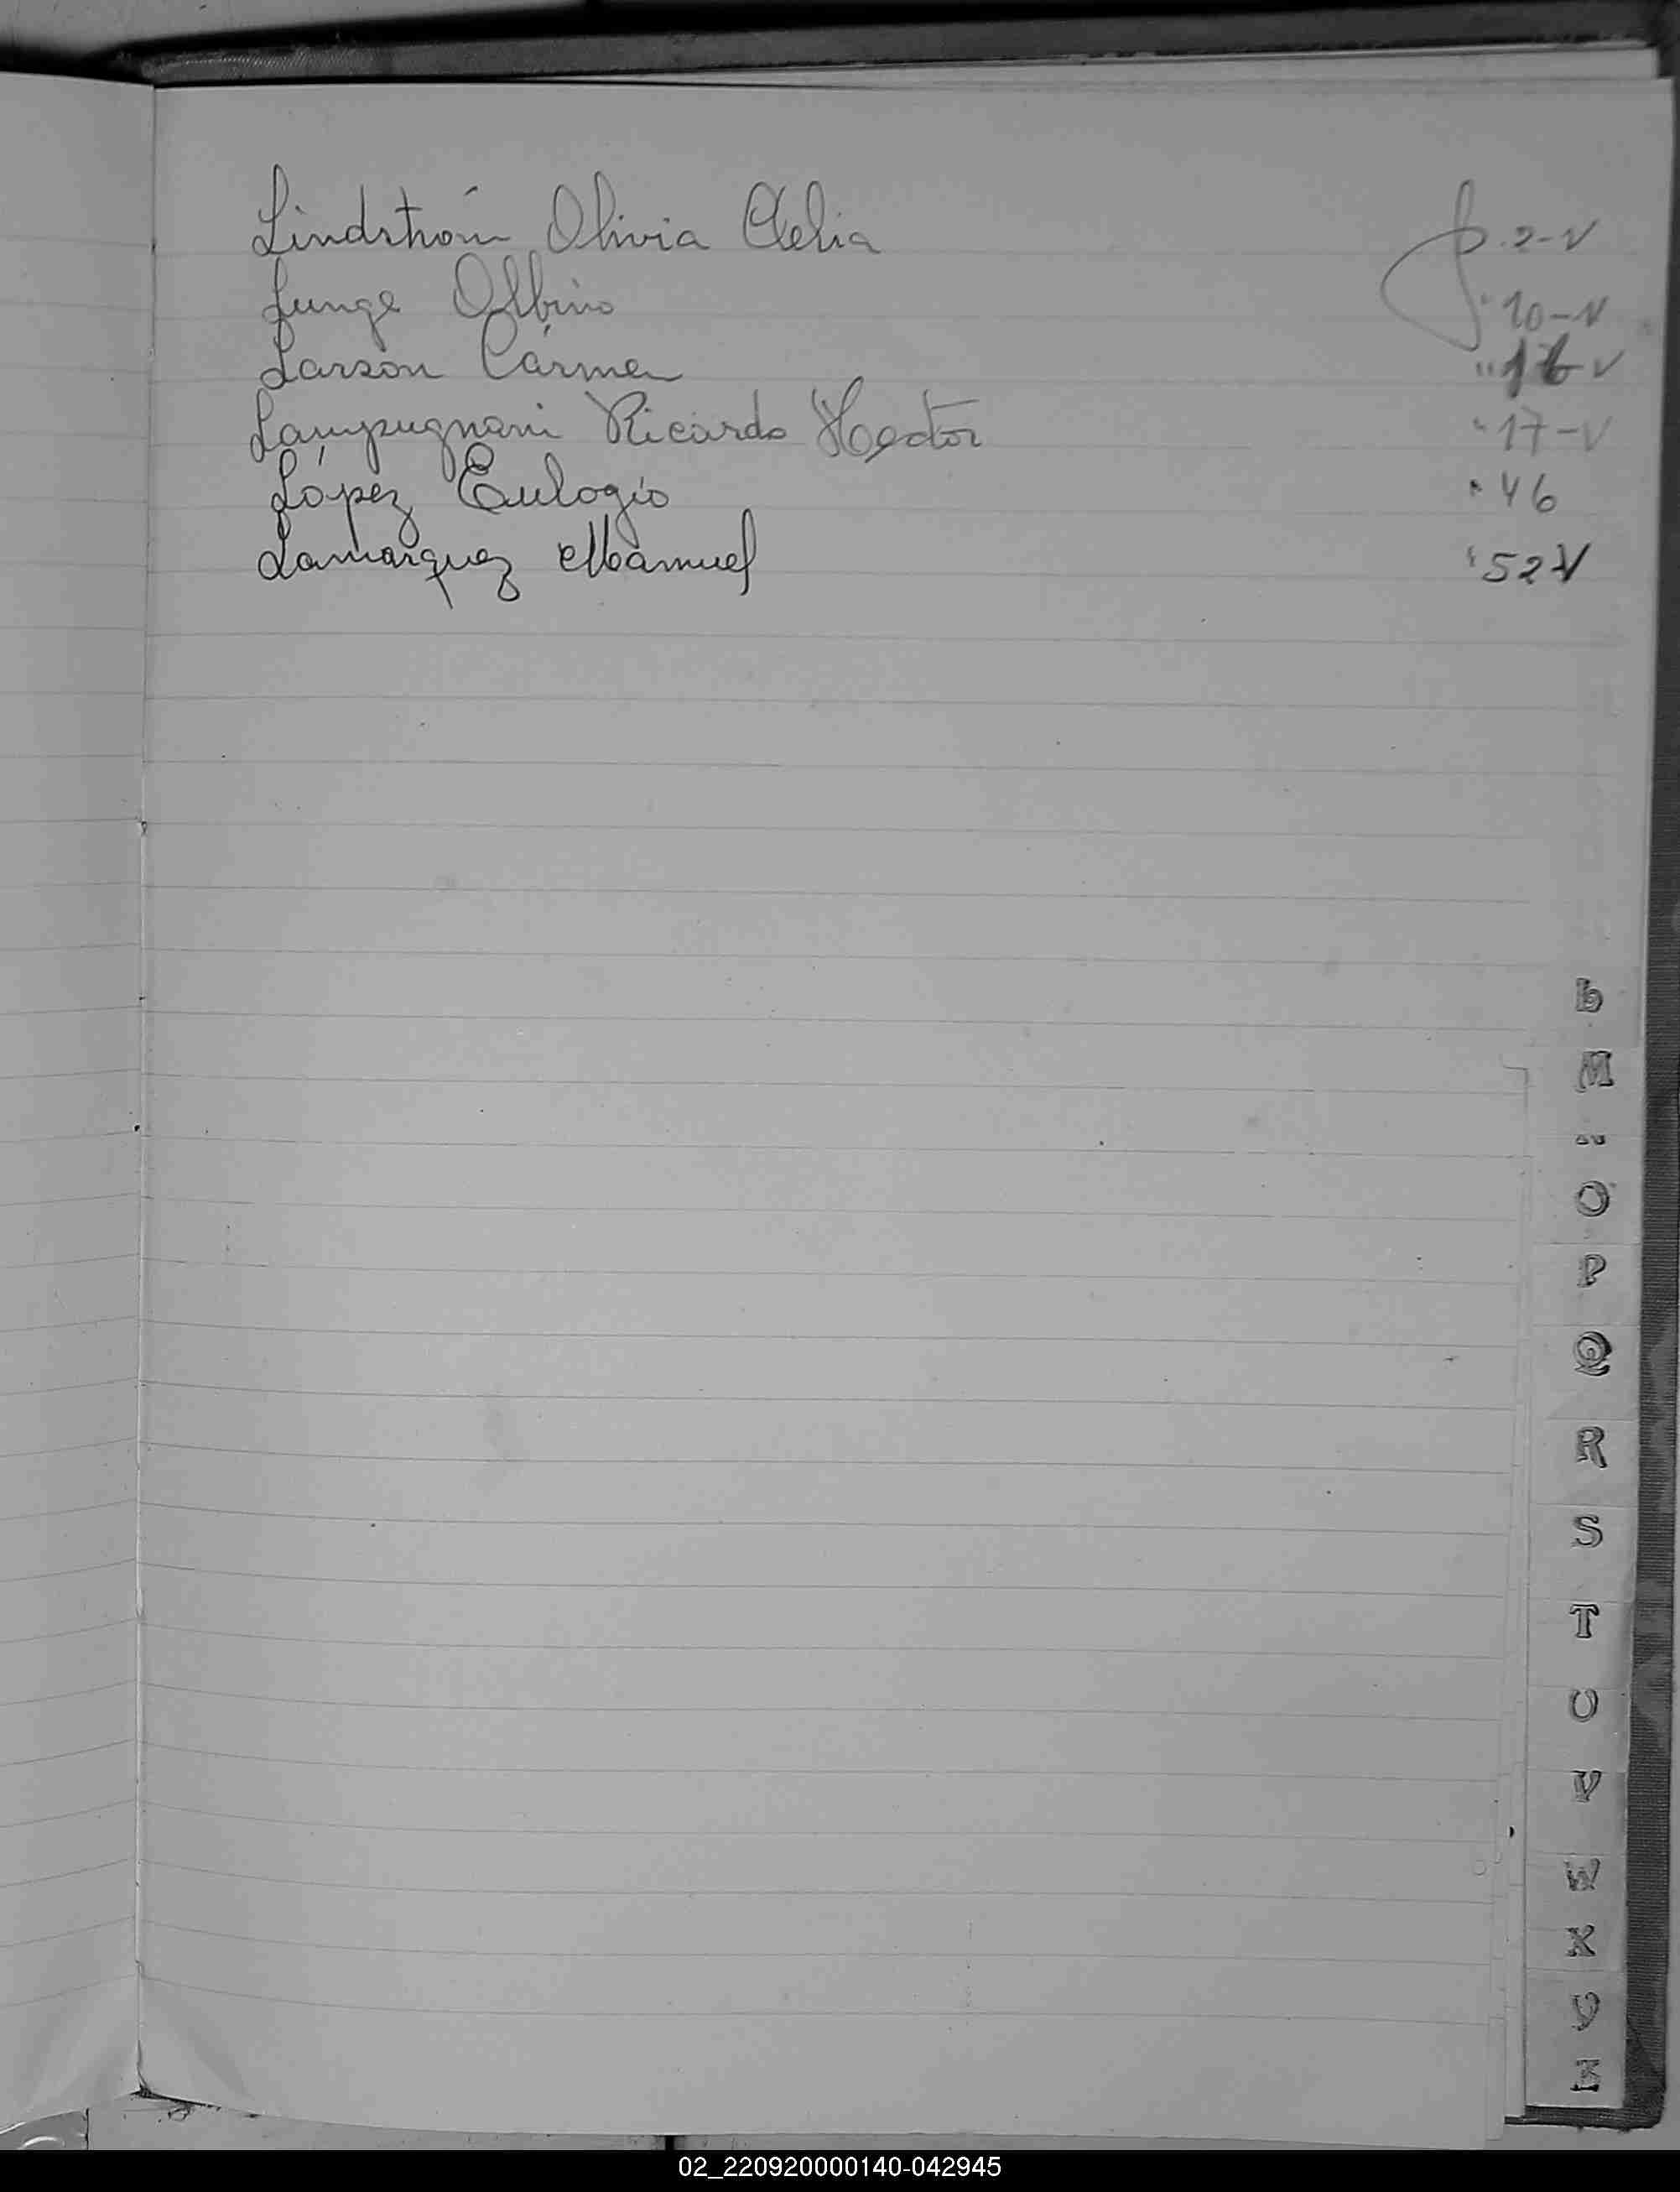 Lindström Olivia Clelia p. 2-V
Lunge Albino " 10-V
Larson Carmen " 16 V
Lampugnani Ricardo Hector " 17-V
López Eulogio " 46
Lamarquez Manuel " 52 V
M
O
P
Q
R
S
T
U
V
W
X
Y
Z
02_220920000140-042945